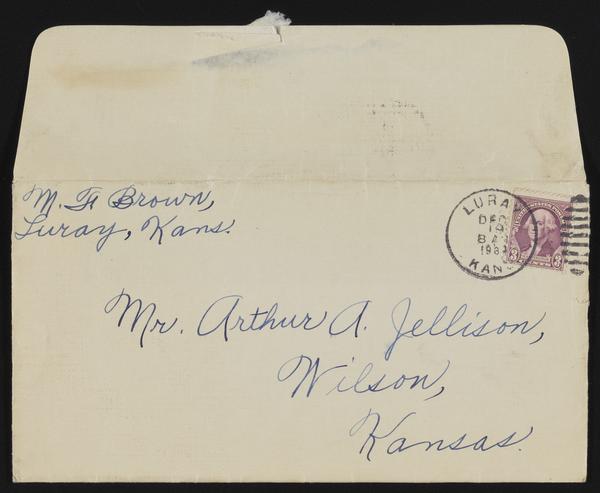 M. F. Brown,
Luray, Kans.
LURAY
DEC
19
KAN
3 3
Mr. Arthur A. Jellison,
Wilson,
Kansas.